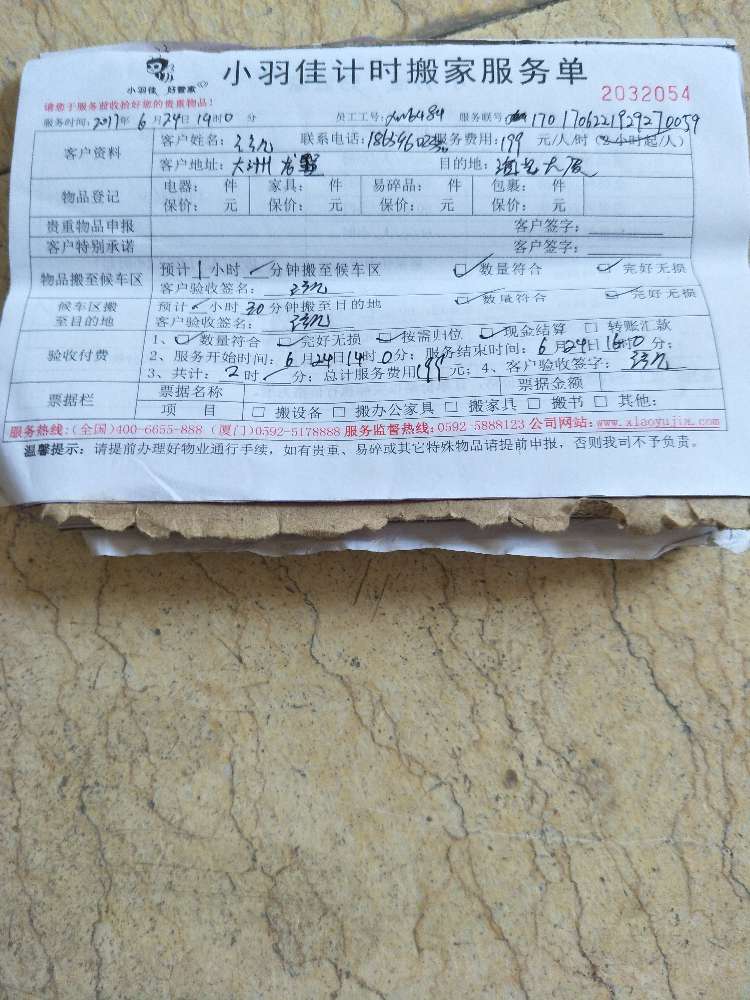 小羽佳 好管家
小羽佳计时搬家服务单
2032054
请您于服务验收拾好您的贵重物品!
服务时间:2017年 6 月24日 14时0 分 员工工号: 服务联号: 17017062219292710059
客户资料
客户姓名: 联系电话: 服务费用:199 元/人/时 (2小时起/人)
客户地址:大洲 目的地: 大厦
物品登记
电器: 件 家具: 件 易碎品: 件 包裹: 件
保价: 元 保价: 元 保价: 元 保价: 元
贵重物品申报 客户签字:
客户特别承诺 客户签字:
物品搬至候车区
预计 1 小时 分钟搬至候车区 数量符合 完好无损
客户验收签名:
候车区搬至目的地
预计 小时 30 分钟搬至目的地 数量符合 完好无损
客户验收签名:
验收付费
1、 数量符合 完好无损 按需归位 现金结算 □ 转账汇款
2、服务开始时间: 6 月24日14时0分; 服务结束时间: 6 月24日16时0 分;
3、共计: 2 时 分; 总计服务费用199 元; 4、客户验收签字:
票据栏
票据名称 票据金额
项 目 □ 搬设备 □ 搬办公家具 □ 搬家具 □ 搬书 □ 其他:
服务热线:(全国)400-6655-888 (厦门)0592-5178888 服务监督热线:0592-5888123 公司网站:www.xiaoyujia.com
温馨提示: 请提前办理好物业通行手续, 如有贵重、易碎或其它特殊物品请提前申报, 否则我司不予负责。